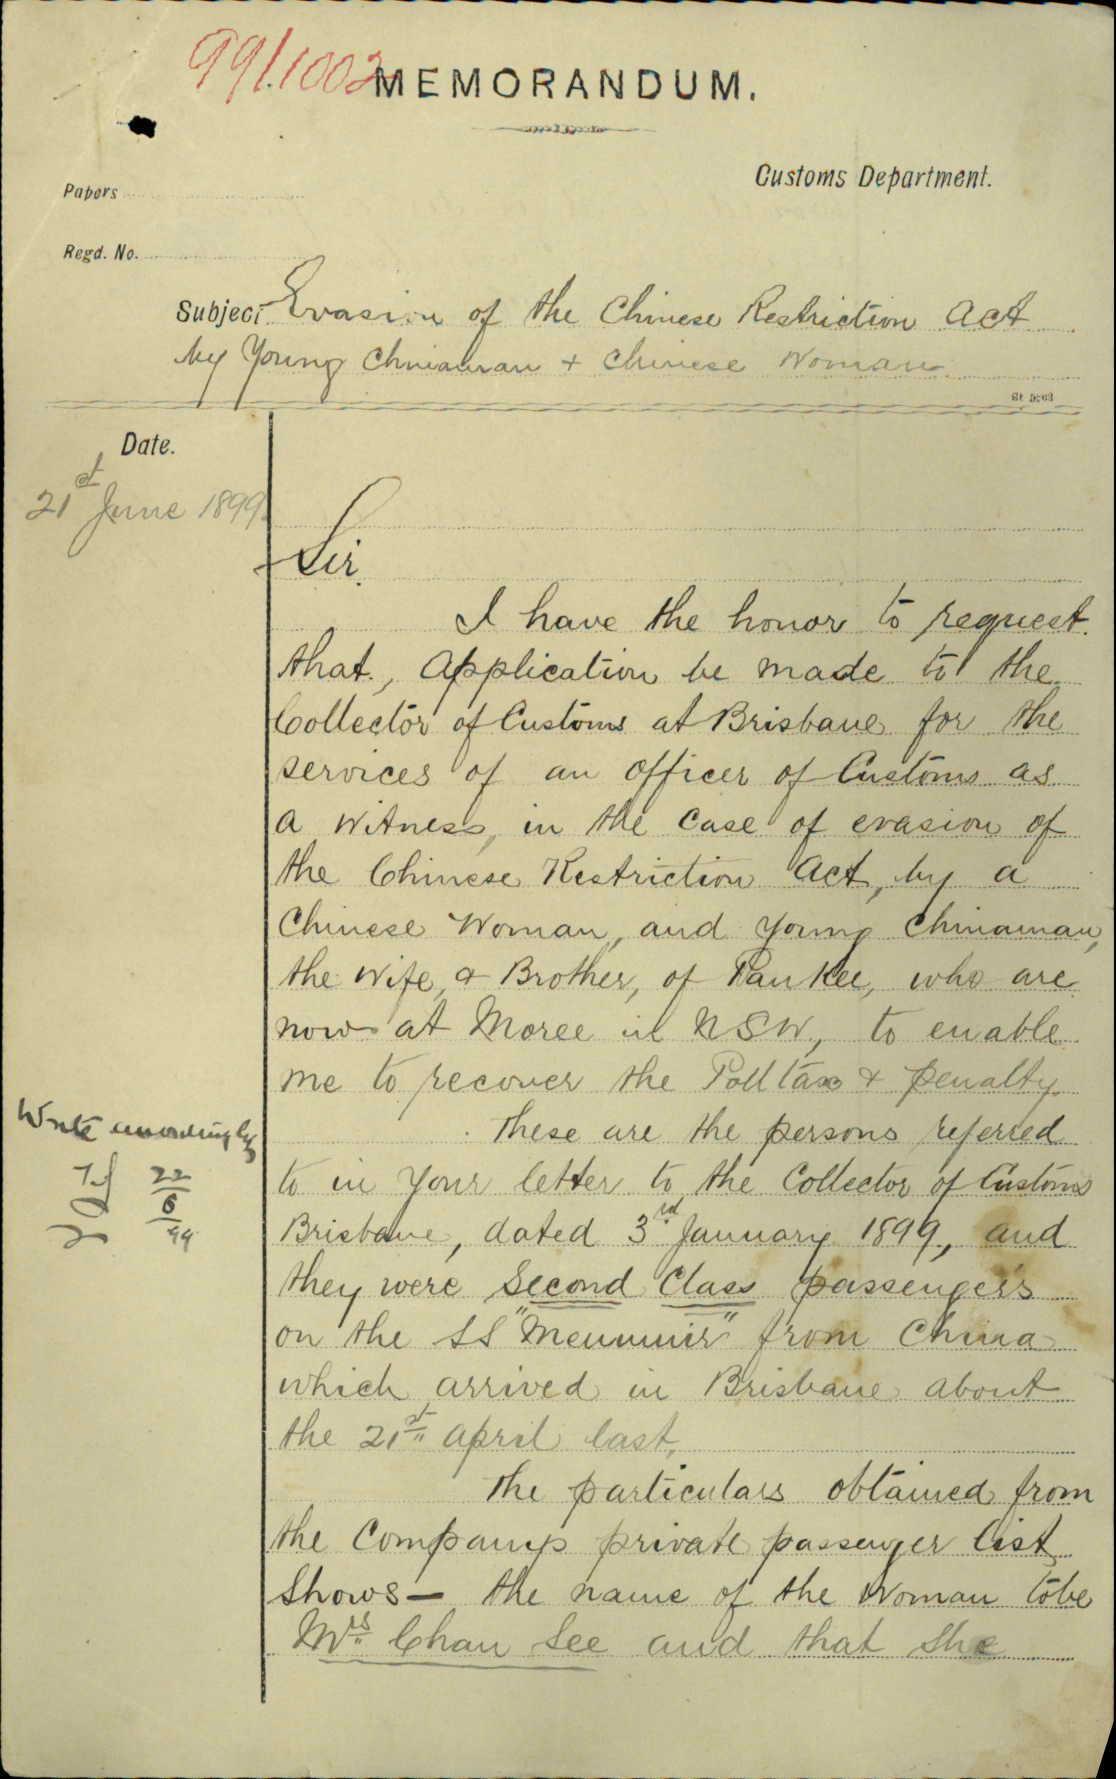 99/1002
MEMORANDUM.
Customs Department.
Papers
Regd. No.
Subject Evasion of the Chinese Restriction Act
by Young Chinaman + Chinese Woman
Date.
21st June 1899
Sir.
I have the honor to request
that, Application be made to the
Collector of Customs at Brisbane for the
services of an Officer of Customs as
a witness, in the case of evasion of
the Chinese Restriction Act, by a
Chinese Woman, and Young Chinaman,
the Wife, & Brother, of Pan Kee, who are
now at Moree in NSW, to enable
me to recover the Poll tax & penalty.
These are the persons referred
to in your letter to the Collector of Customs
Brisbane, dated 3rd January 1899, and
they were Second Class passengers
on the SS "Menmuir" from China
which arrived in Brisbane about
the 21st April last.
The particulars obtained from
the Companys private passenger list
Shows — the name of the Woman to be
Mrs Chan See and that she
Write accordingly
22
6
99